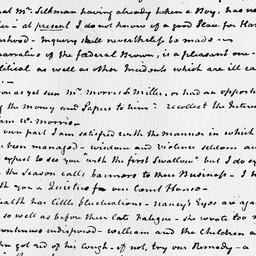 that Mr. Silkman having already taken a Boy, has no
er - at present I do not know of a good Place for Har
rashood - Inquiry shall nevertheless be made -
Narrative of the Fœderal Brown, is a pleasant one -
olitical as well as other Incidents which are ill ca
e -
you as yet seen Mr. Morris & Mills, or had an opportu
of the Money and Papers to him? recollect the Interes
am Wr. Morris -
own part I am satisfied with the Manner in which
been managed - wisdom and violence seldom as
expect to see you "with the first Swallow" but I do ex
the Season calls Farmers to their Business - I
th you a Quietus from our Court House -
Health has little fluctuations - Nancy's Eyes are aga
so well as before their late Fatigue - She wrote too m
continues indisposed - William and the Children a
been got rid of his cough - if not, try our Remedy - a